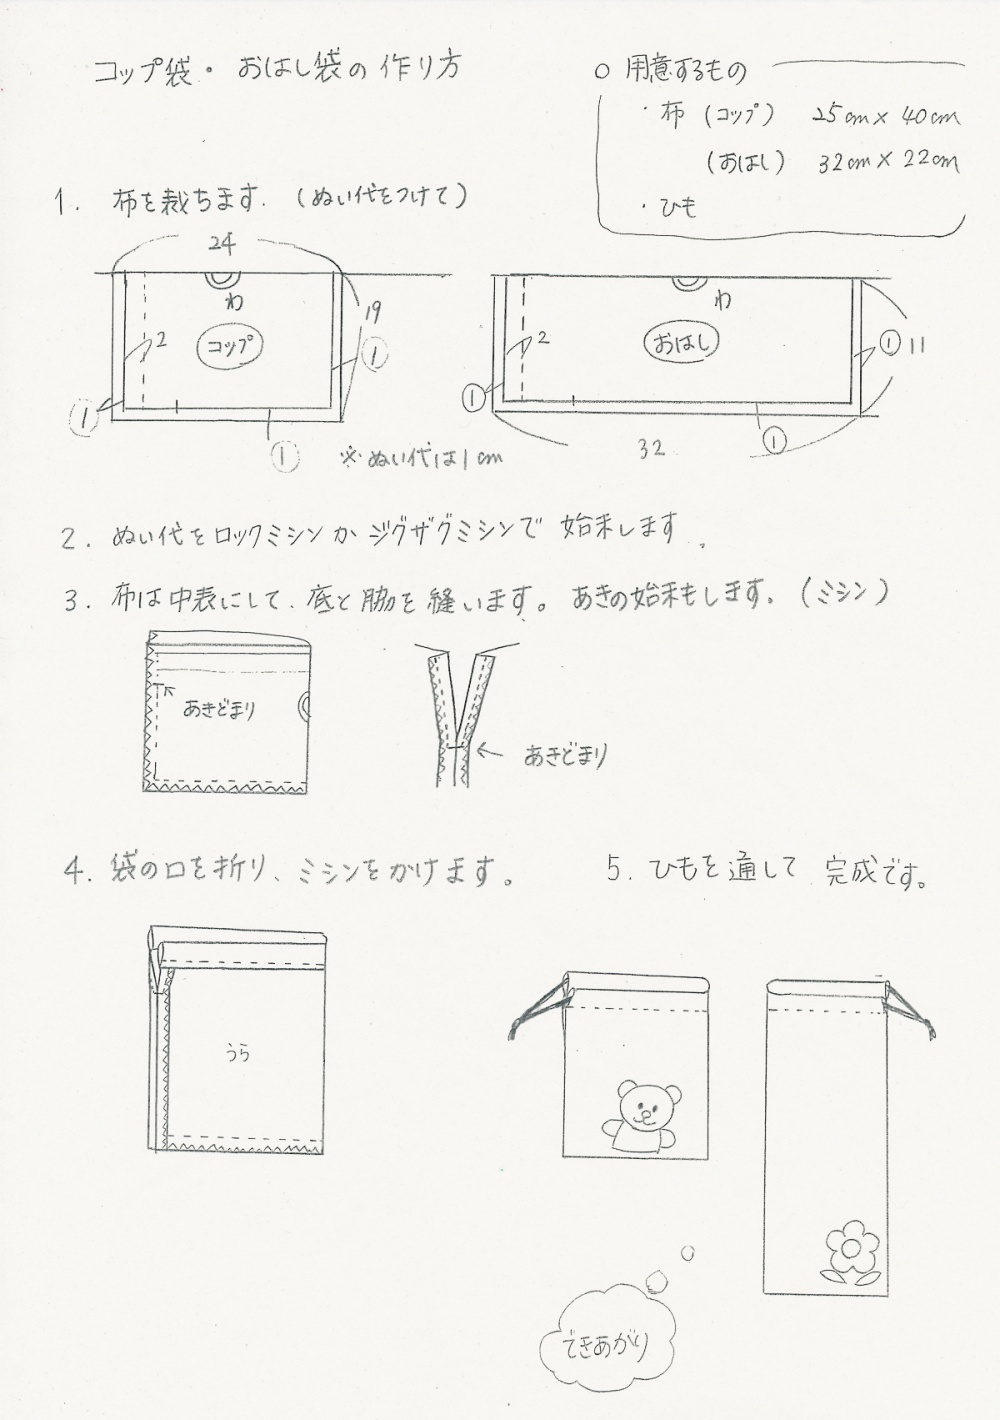 コップ袋・おはし袋の作り方
○ 用意するもの
・布 (コップ) 25cm×40cm
(おはし) 32cm×22cm
・ひも
1. 布を裁ちます. (ぬい代をつけて)
24
わ
19
2
コップ
①
①
①
わ
2
おはし
① 11
①
①
32
※ぬい代は1cm
2. ぬい代をロックミシンかジグザグミシンで始末します.
3. 布は中表にして、底と脇を縫います。あきの始末もします. (ミシン)
あきどまり
あきどまり
4. 袋の口を折り、ミシンをかけます。
うら
5. ひもを通して 完成です。
できあがり